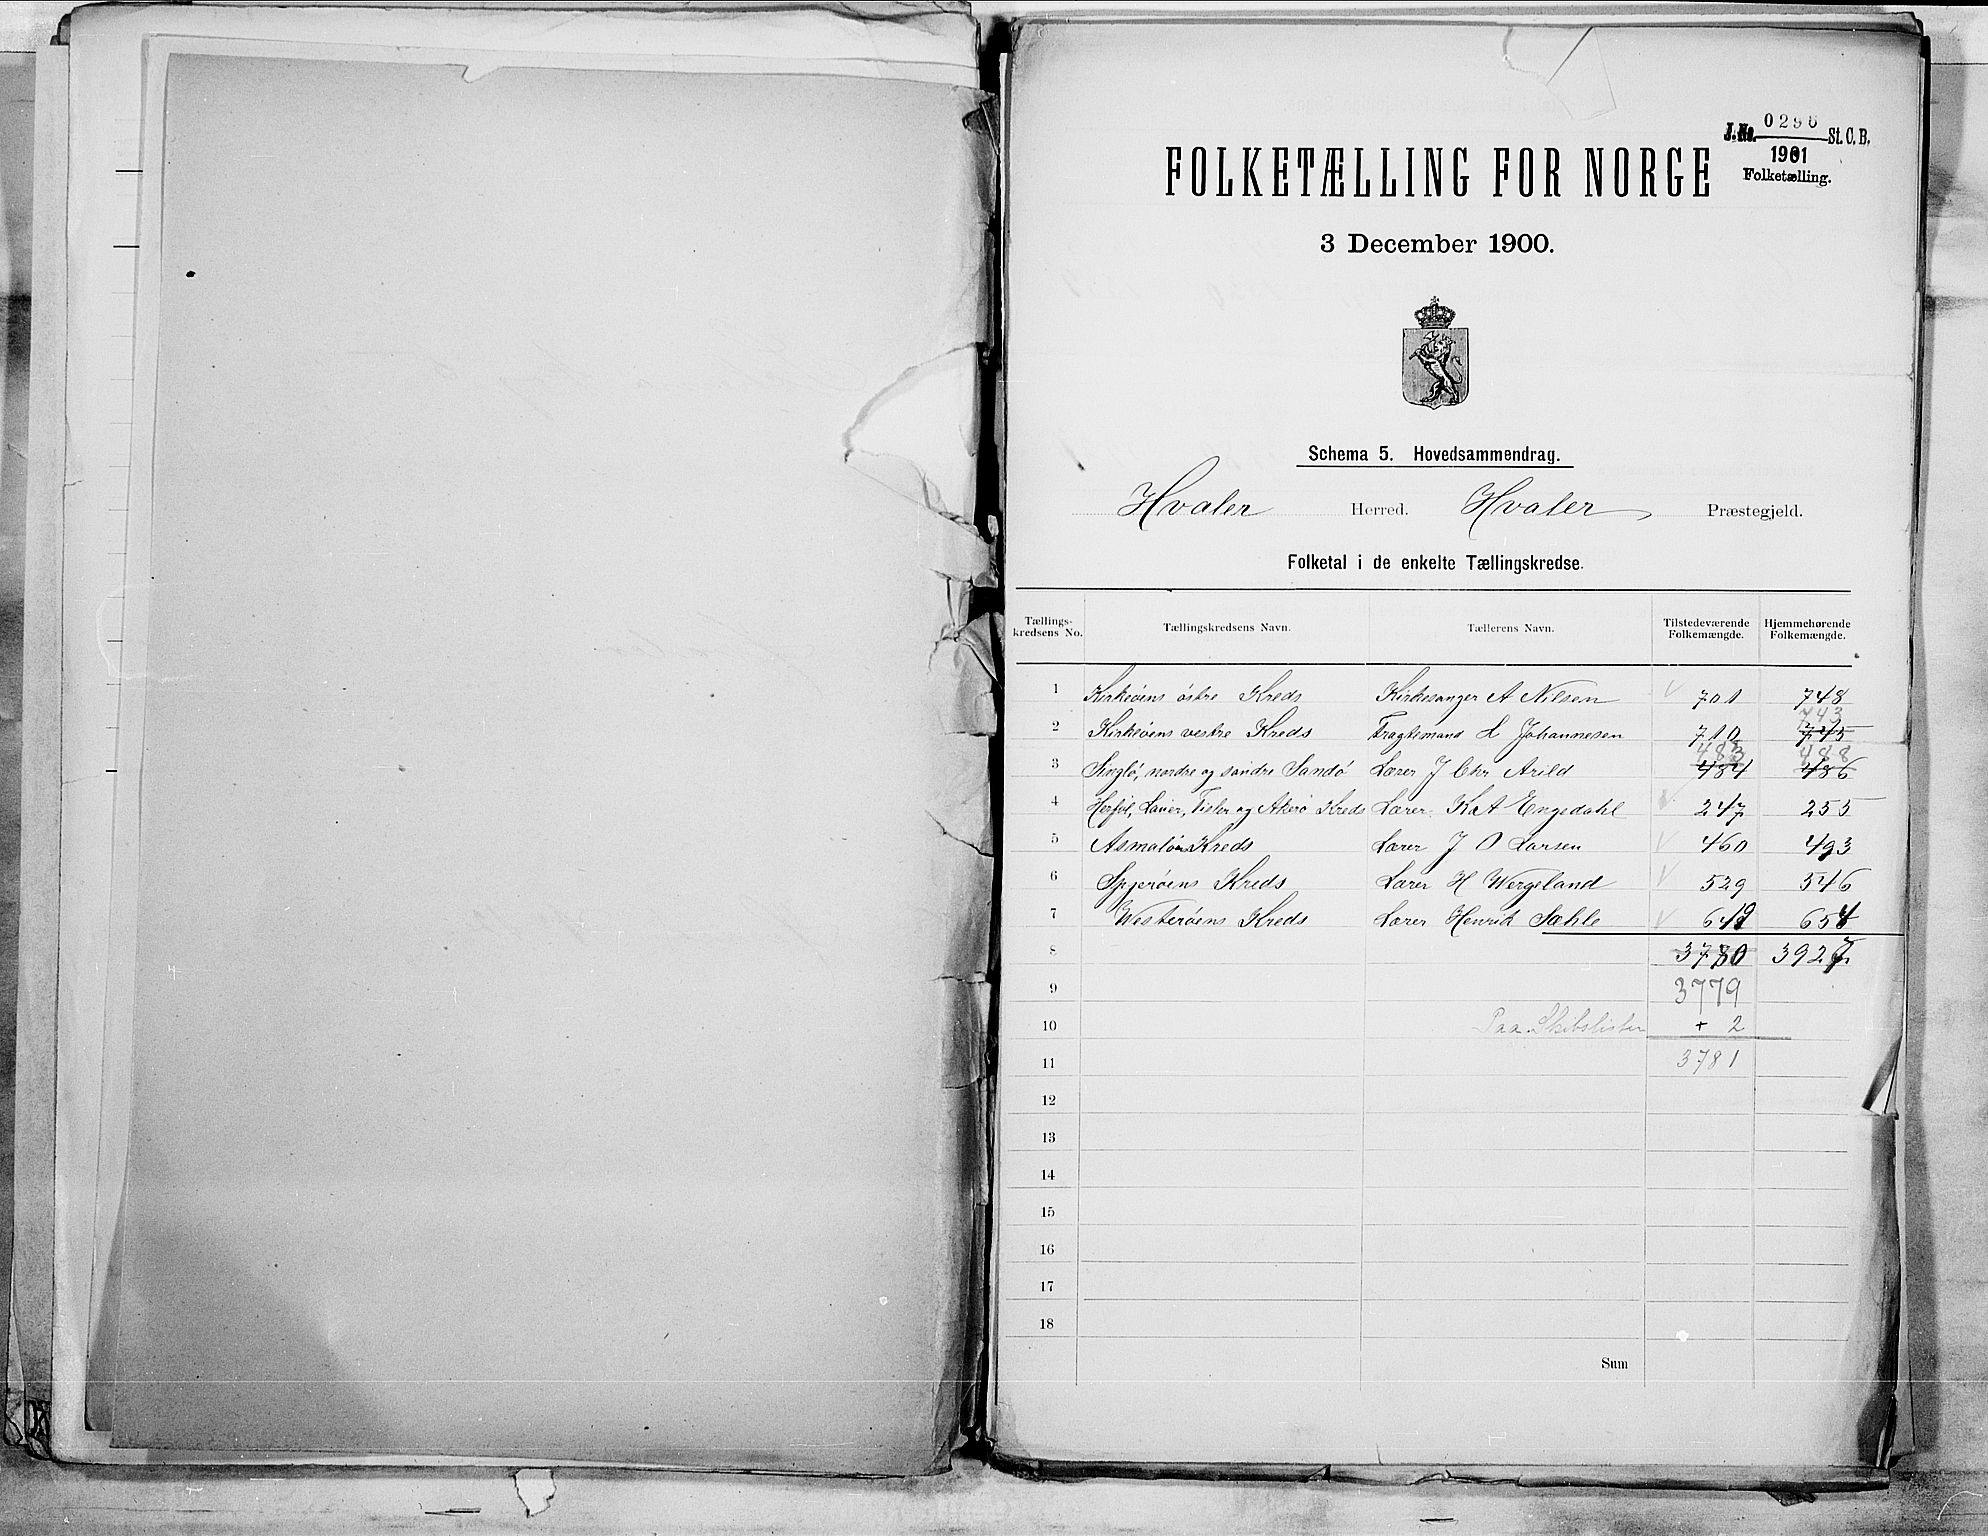 J.No. 0296 St. C. B.
1901
Folketælling.
FOLKETÆLLING FOR NORGE
3 December 1900.
Schema 5. Hovedsammendrag.
Hvaler Herred. Hvaler Præstegjeld.
Folketal i de enkelte Tællingskredse.
Tællings-kredsens No. Tællingskredsens Navn. Tællerens Navn. Tilstedeværende Folkemængde. Hjemmehørende Folkemængde.
1 Kirkeöens östre Kreds Kirkesanger A Nilsen 701 748
743
2 Kirkeöens vestre Kreds Fragtemand L Johannesen 710 745
483 488
3 Singlö, nordre og söndre Sandö Lærer J Chr Arild 484 486
4 Herföl, Lauer, Tisler og Akerö Kreds Lærer K A Engedahl 247 255
5 Asmalöens Kreds Lærer J O Larsen 460 493
6 Spjeröens Kreds Lærer H Wergeland 529 546
7 Westeröens Kreds Lærer Henrik Sæhle 649 654
8 3780 3927
9 3779
10 Paa Skibslister + 2
11 3781
12
13
14
15
16
17
18
Sum